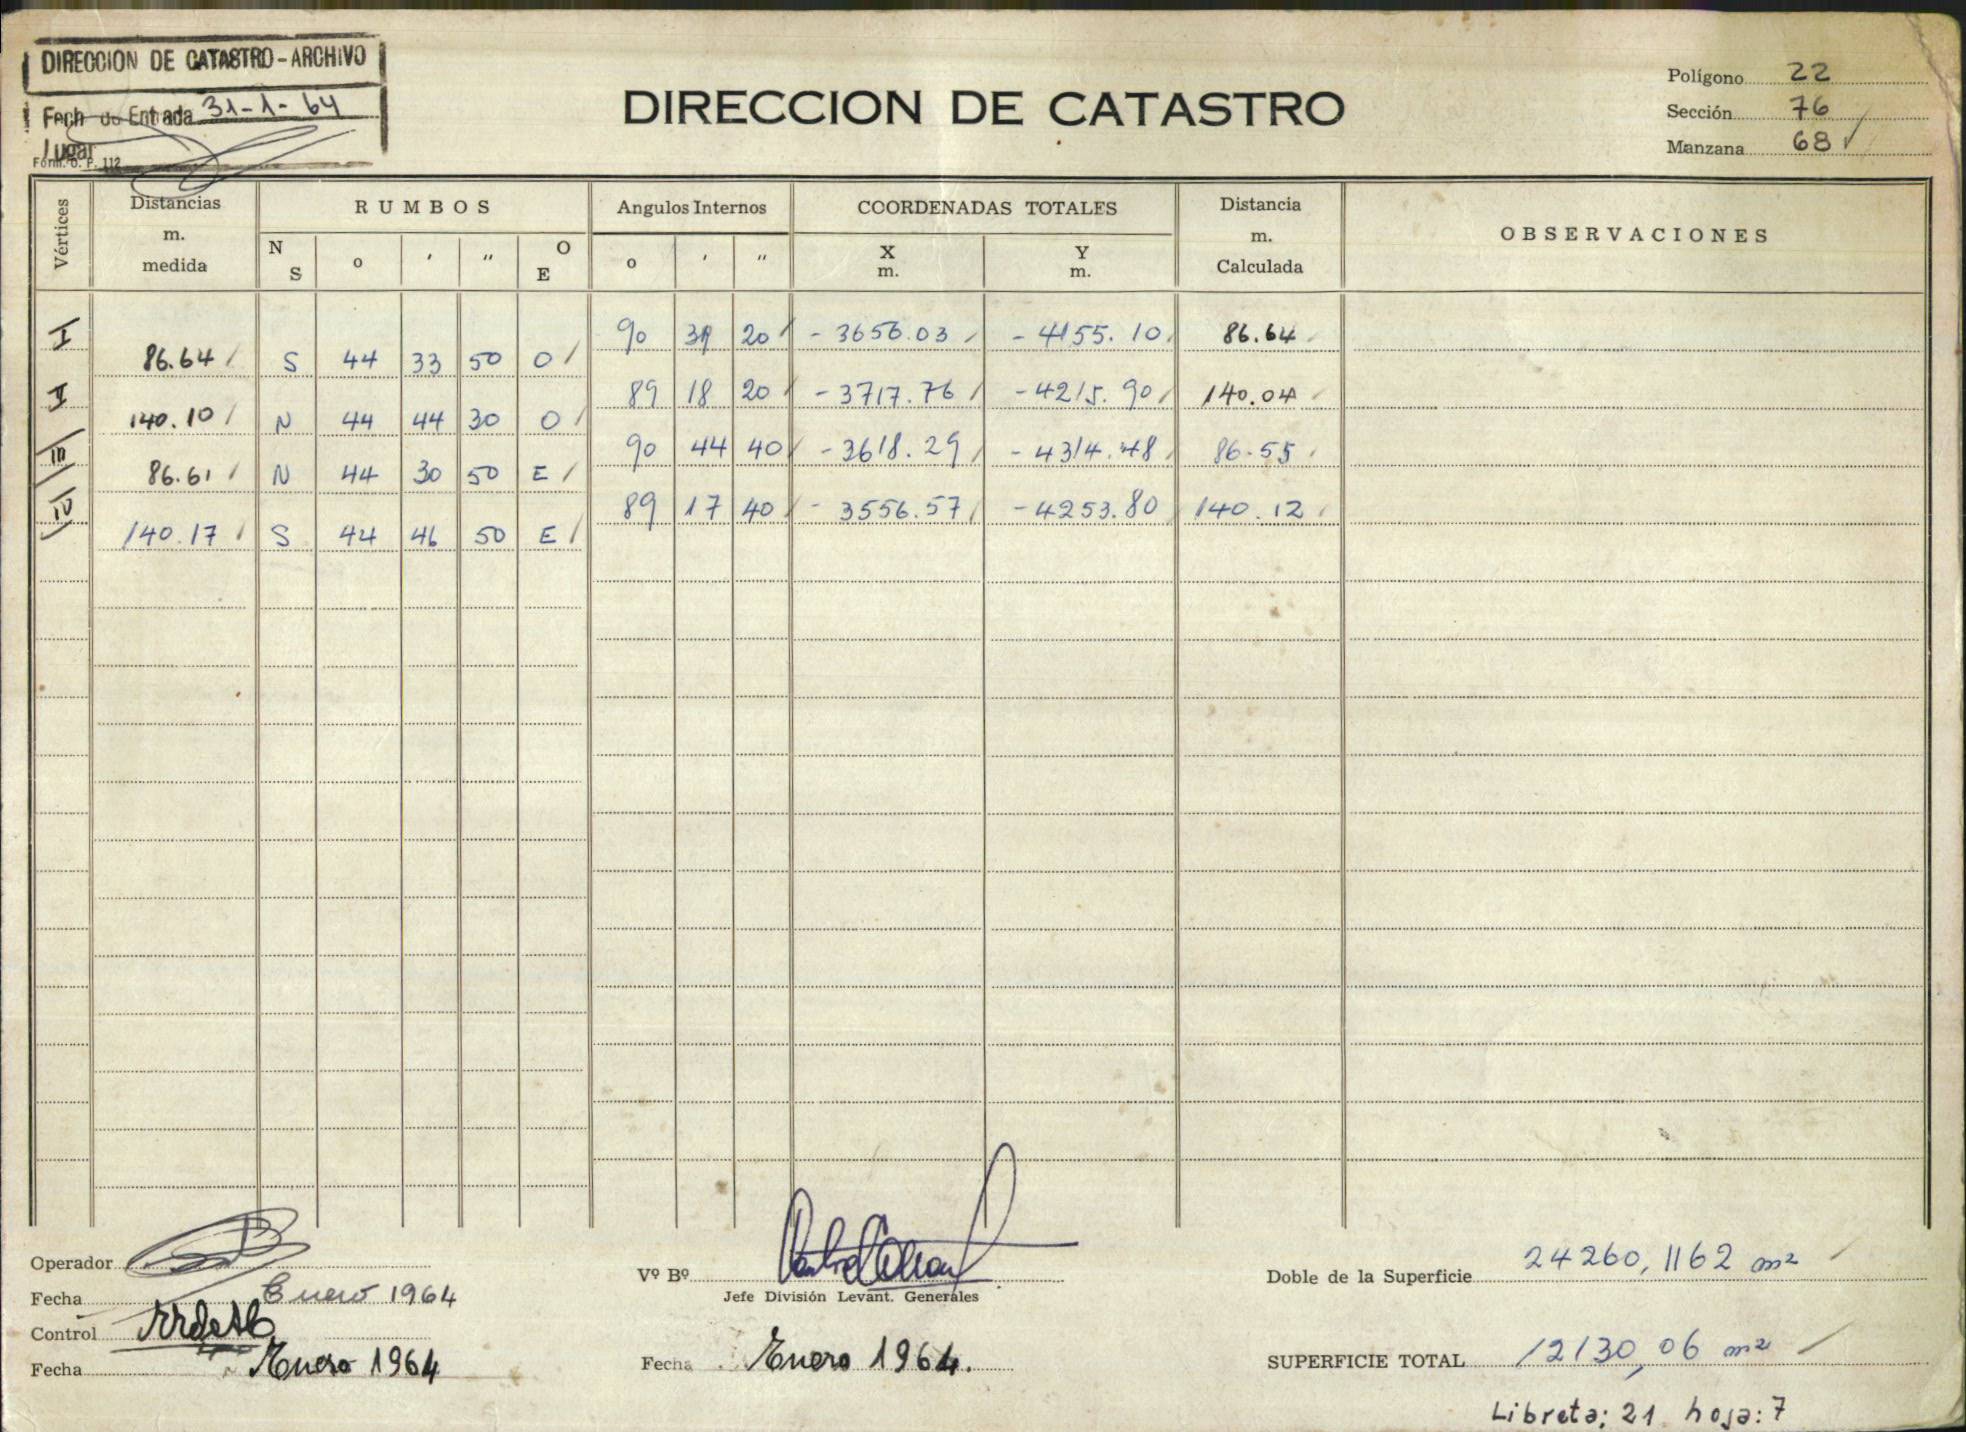 DIRECCION DE CATASTRO - ARCHIVO
Fech de Entrada 31-1-64
Lugar
Form. O. P. 112
DIRECCION DE CATASTRO
Polígono 22
Sección 76
Manzana 68
Vértices
Distancias m. medida
RUMBOS
N S o ' " O E
Angulos Internos
o ' "
COORDENADAS TOTALES
X m. Y m.
Distancia m. Calculada
OBSERVACIONES
I 90 39 20 - 3656.03 - 4155.10 86.64
86.64 S 44 33 50 O
II 89 18 20 - 3717.76 - 4215.90 140.04
140.10 N 44 44 30 O
III 90 44 40 - 3618.29 - 4314.48 86.55
86.61 N 44 30 50 E
IV 89 17 40 - 3556.57 - 4253.80 140.12
140.17 S 44 46 50 E
Operador
Fecha Enero 1964
Control
Fecha Enero 1964
Vº Bº
Jefe División Levant. Generales
Fecha Enero 1964.
Doble de la Superficie 24260,1162 m²
SUPERFICIE TOTAL 12130,06 m²
Libreta: 21 hoja: 7